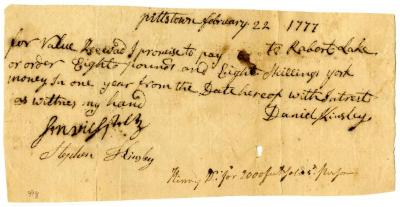 pittstown february 22 1777
for Value Receivd I promise to pay to Robort Lake
or order Eight pounds and Eight Shillings york
money In one year from the Date hereof with Intrest
as witnes my hand
Daniel Kinsley
Stephen Kinsley
for 2000